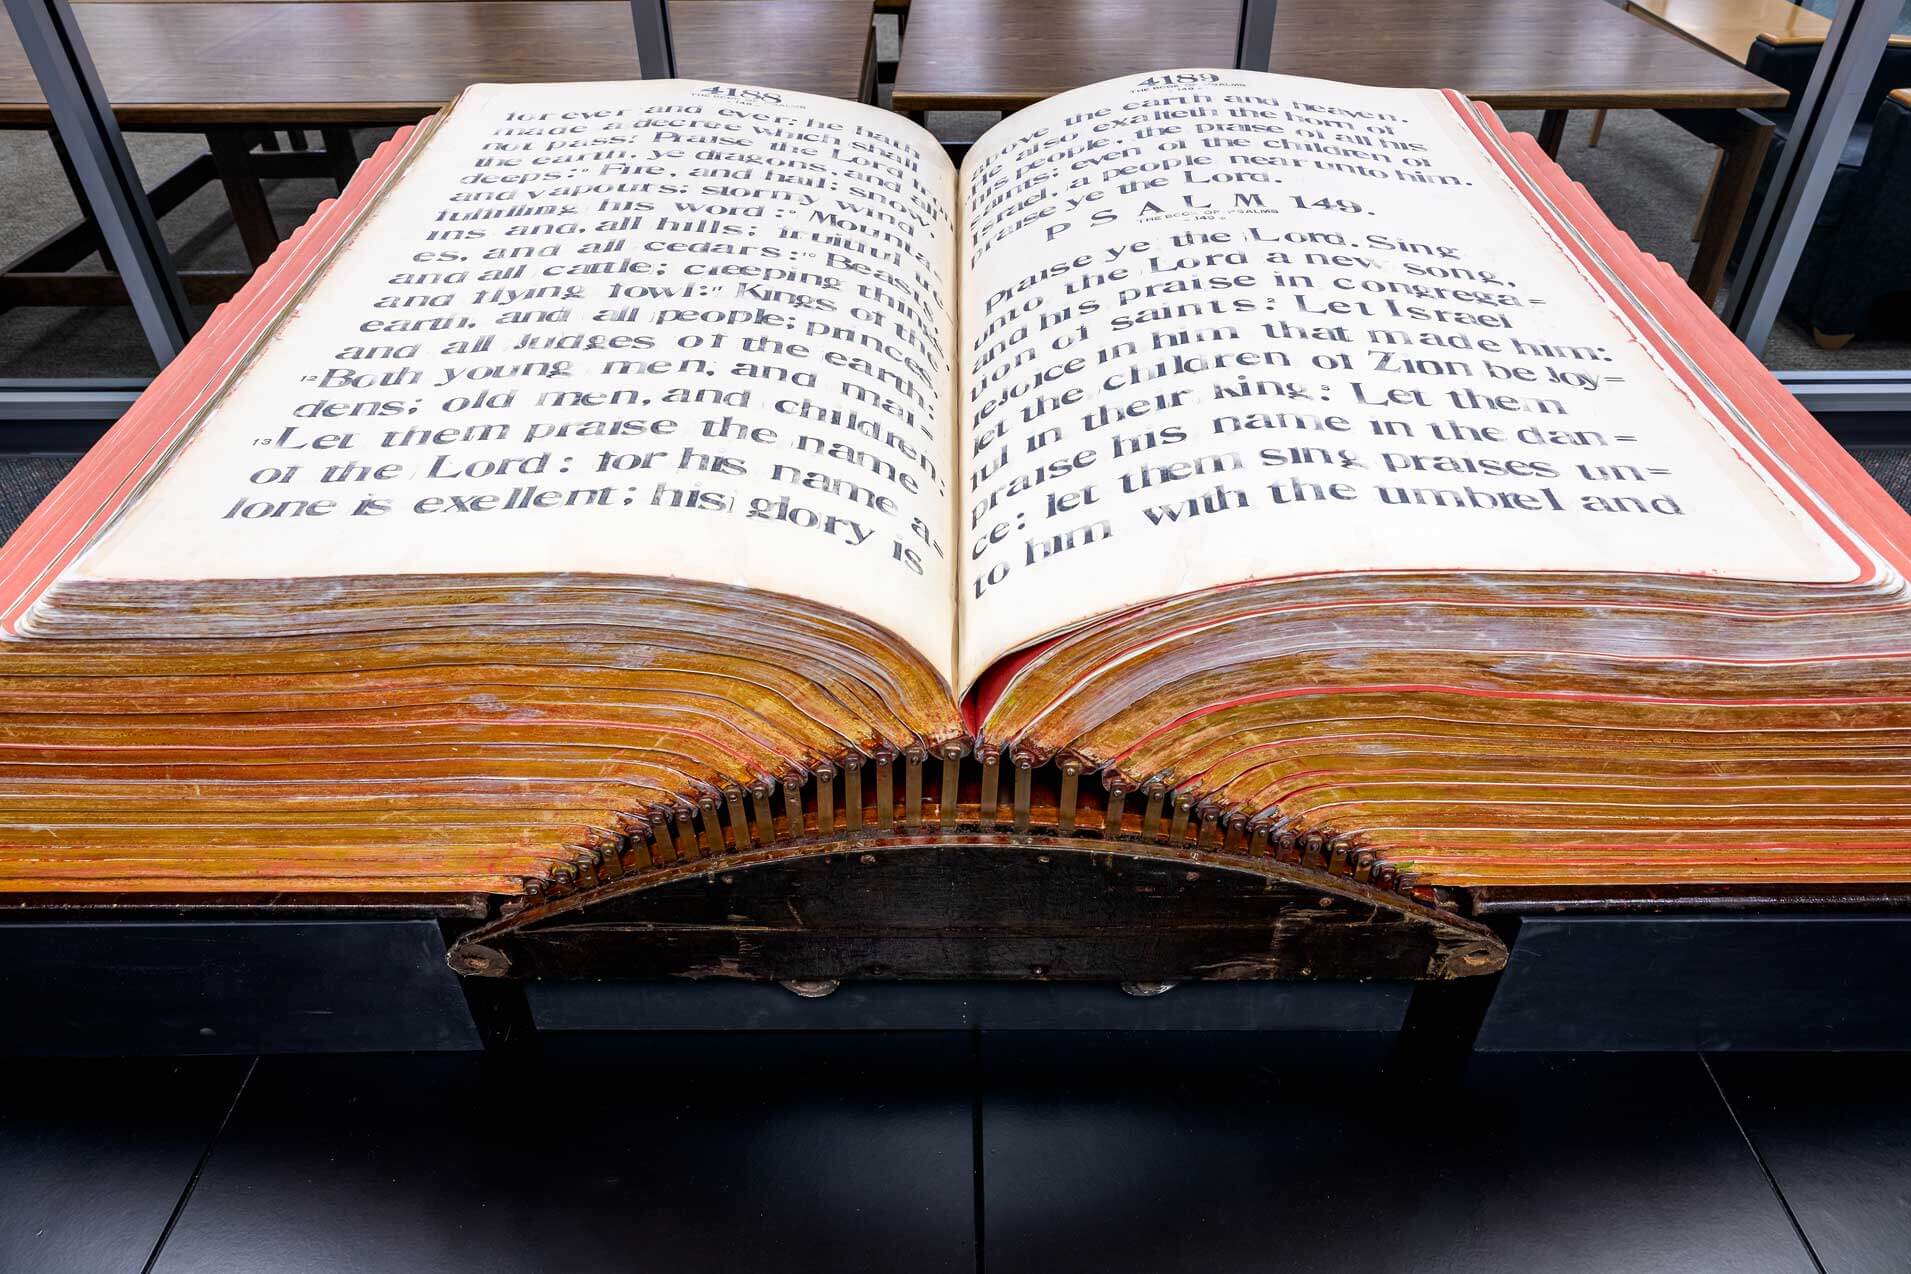 4188
THE BOOK OF PSALMS
- 148 -
for ever and ever: he hath
made a decree which shall
not pass: Praise the Lord
the earth, ye dragons, and
deeps: 8 Fire, and hail; snow,
and vapours; stormy wind,
fulfilling his word: 9 Mounta-
ins and, all hills; fruitful
es, and all cedars: 10 Beasts
and all cattle; creeping things,
and flying fowl: 11 Kings of the
earth, and all people; princes,
and all Judges of the earth:
12 Both young men, and mai=
dens; old men, and children:
13 Let them praise the name
of the Lord: for his name a=
lone is exellent; his glory is
4189
THE BOOK OF PSALMS
- 149 -
above the earth and heaven.
He also exalteth the horn of
his people, the praise of all his
saints; even of the children of
Israel, a people near unto him.
praise ye the Lord.
PSALM 149.
THE BOOK OF PSALMS
- 149 -
Praise ye the Lord. Sing
unto the Lord a new song,
and his praise in congrega=
tion of saints: 2 Let Israel
rejoice in him that made him:
let the children of Zion be joy=
ful in their king: 3 Let them
praise his name in the dan=
ce: let them sing praises un=
to him with the umbrel and